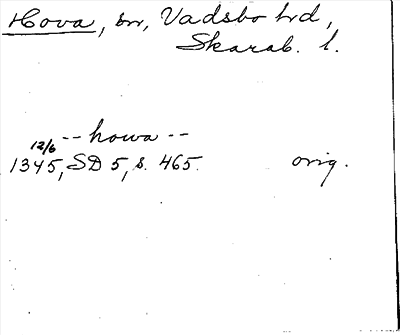 Hova, sn, Vadsbo hd,
Skarab. l.
-- howa --
12/6
1345, SD 5, s. 465. orig.